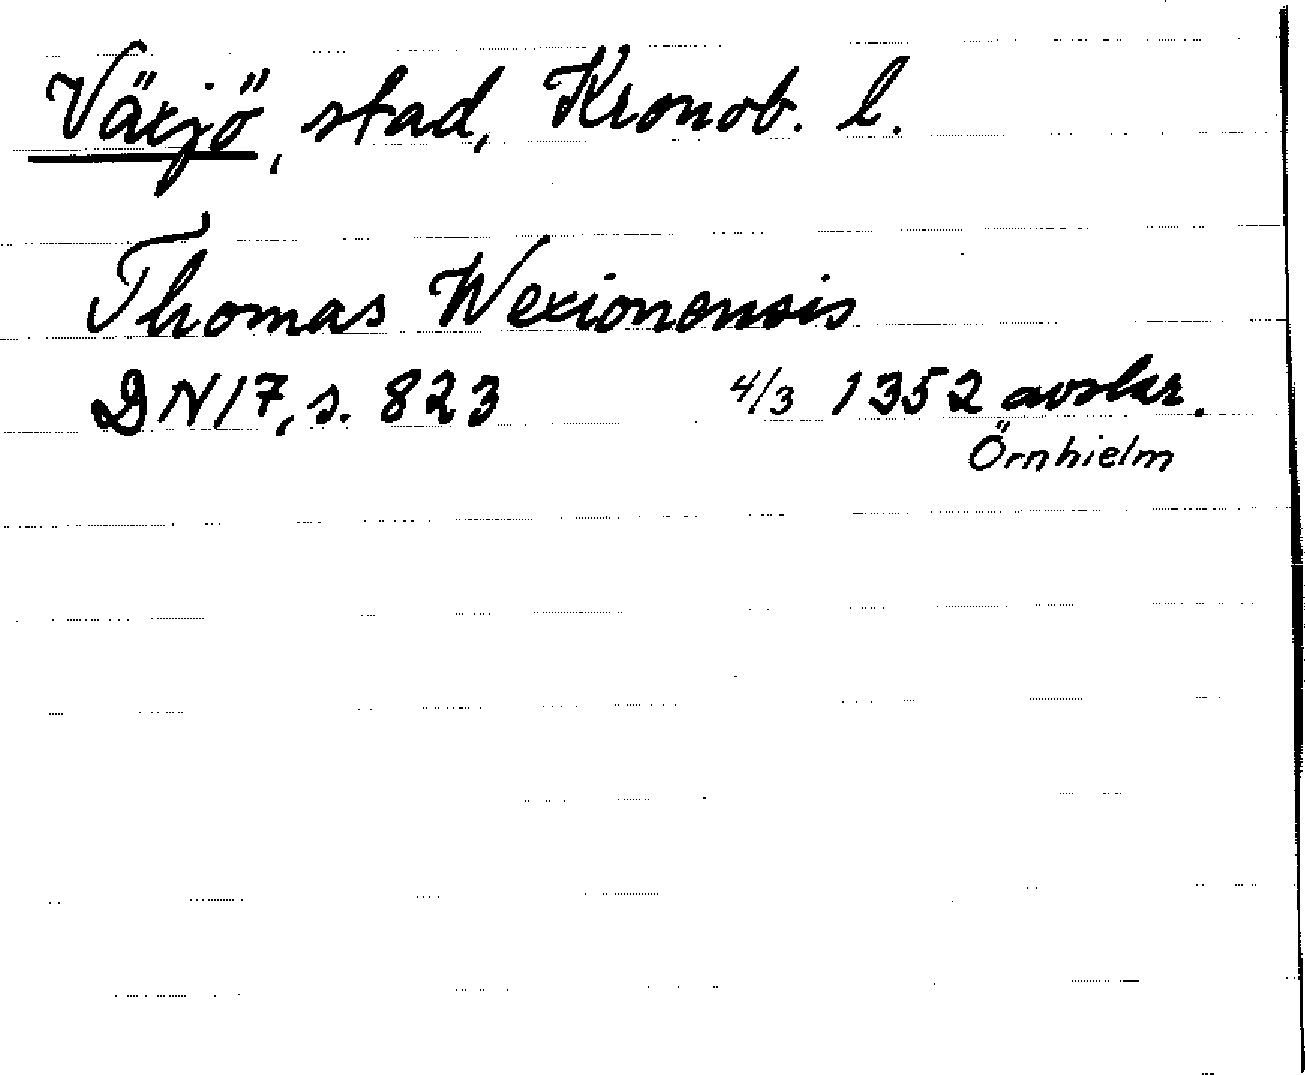 Växjö, stad, Kronob. l.
Thomas Wexionensis
DN 17, s. 823 4/3 1352 avskr.
Örnhielm